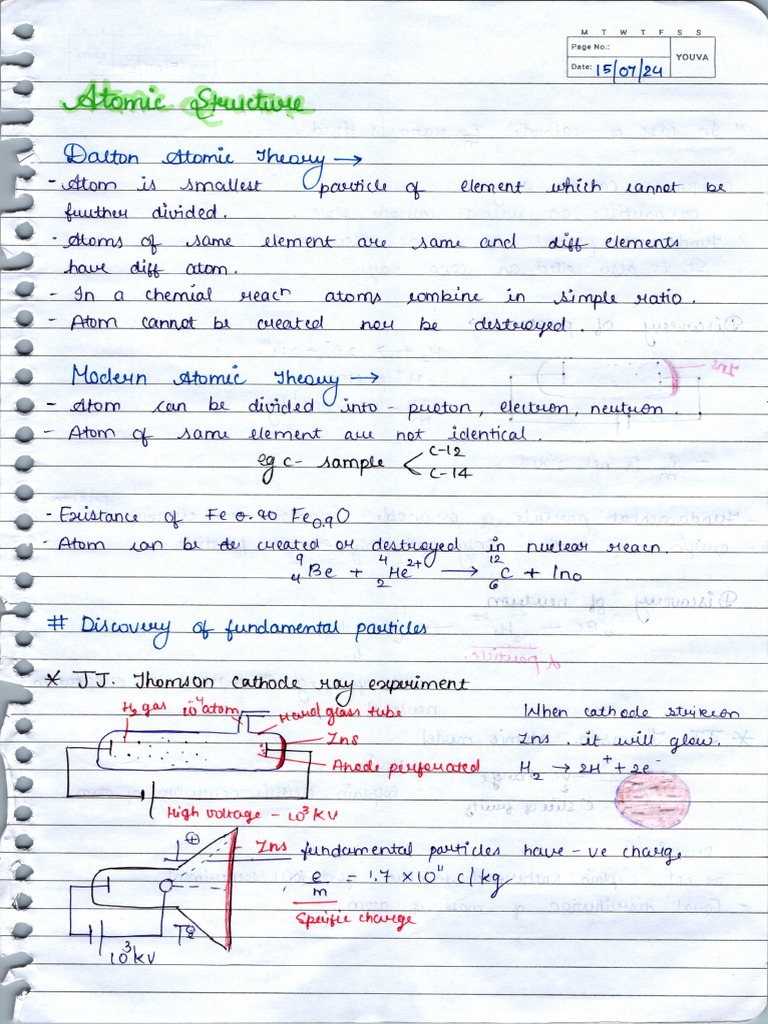 M T W T F S S
Page No.:
YOUVA
Date: 15/07/24
Atomic Structure
Dalton Atomic Theory →
- Atom is smallest particle of element which cannot be
further divided.
- Atoms of same element are same and diff elements
have diff atom.
- In a chemial reacⁿ atoms combine in simple ratio.
- Atom cannot be created nor be destroyed.
Modern Atomic Theory →
- Atom can be divided into - proton, electron, neutron.
- Atom of same element are not identical.
eg C- sample < C-12
C-14
- Existance of Fe 0.90 Fe₀.₉O
- Atom can be created or destroyed in nuclear reacn.
⁹₄Be + ⁴₂He²⁺ → ¹²₆C + 1n0
# Discovery of fundamental particles
* JJ. Thomson cathode ray experiment
H₂ gas 10⁻⁴ atom Hard glass tube
When cathode strike on
Zns
Zns. it will glow.
Anode perforated
H₂ → 2H⁺ + 2e⁻
High voltage - 10³ KV
⊕
Zns
fundamental particles have -ve charge
e/m = 1.7 × 10¹¹ c/kg
Specific charge
10³ KV